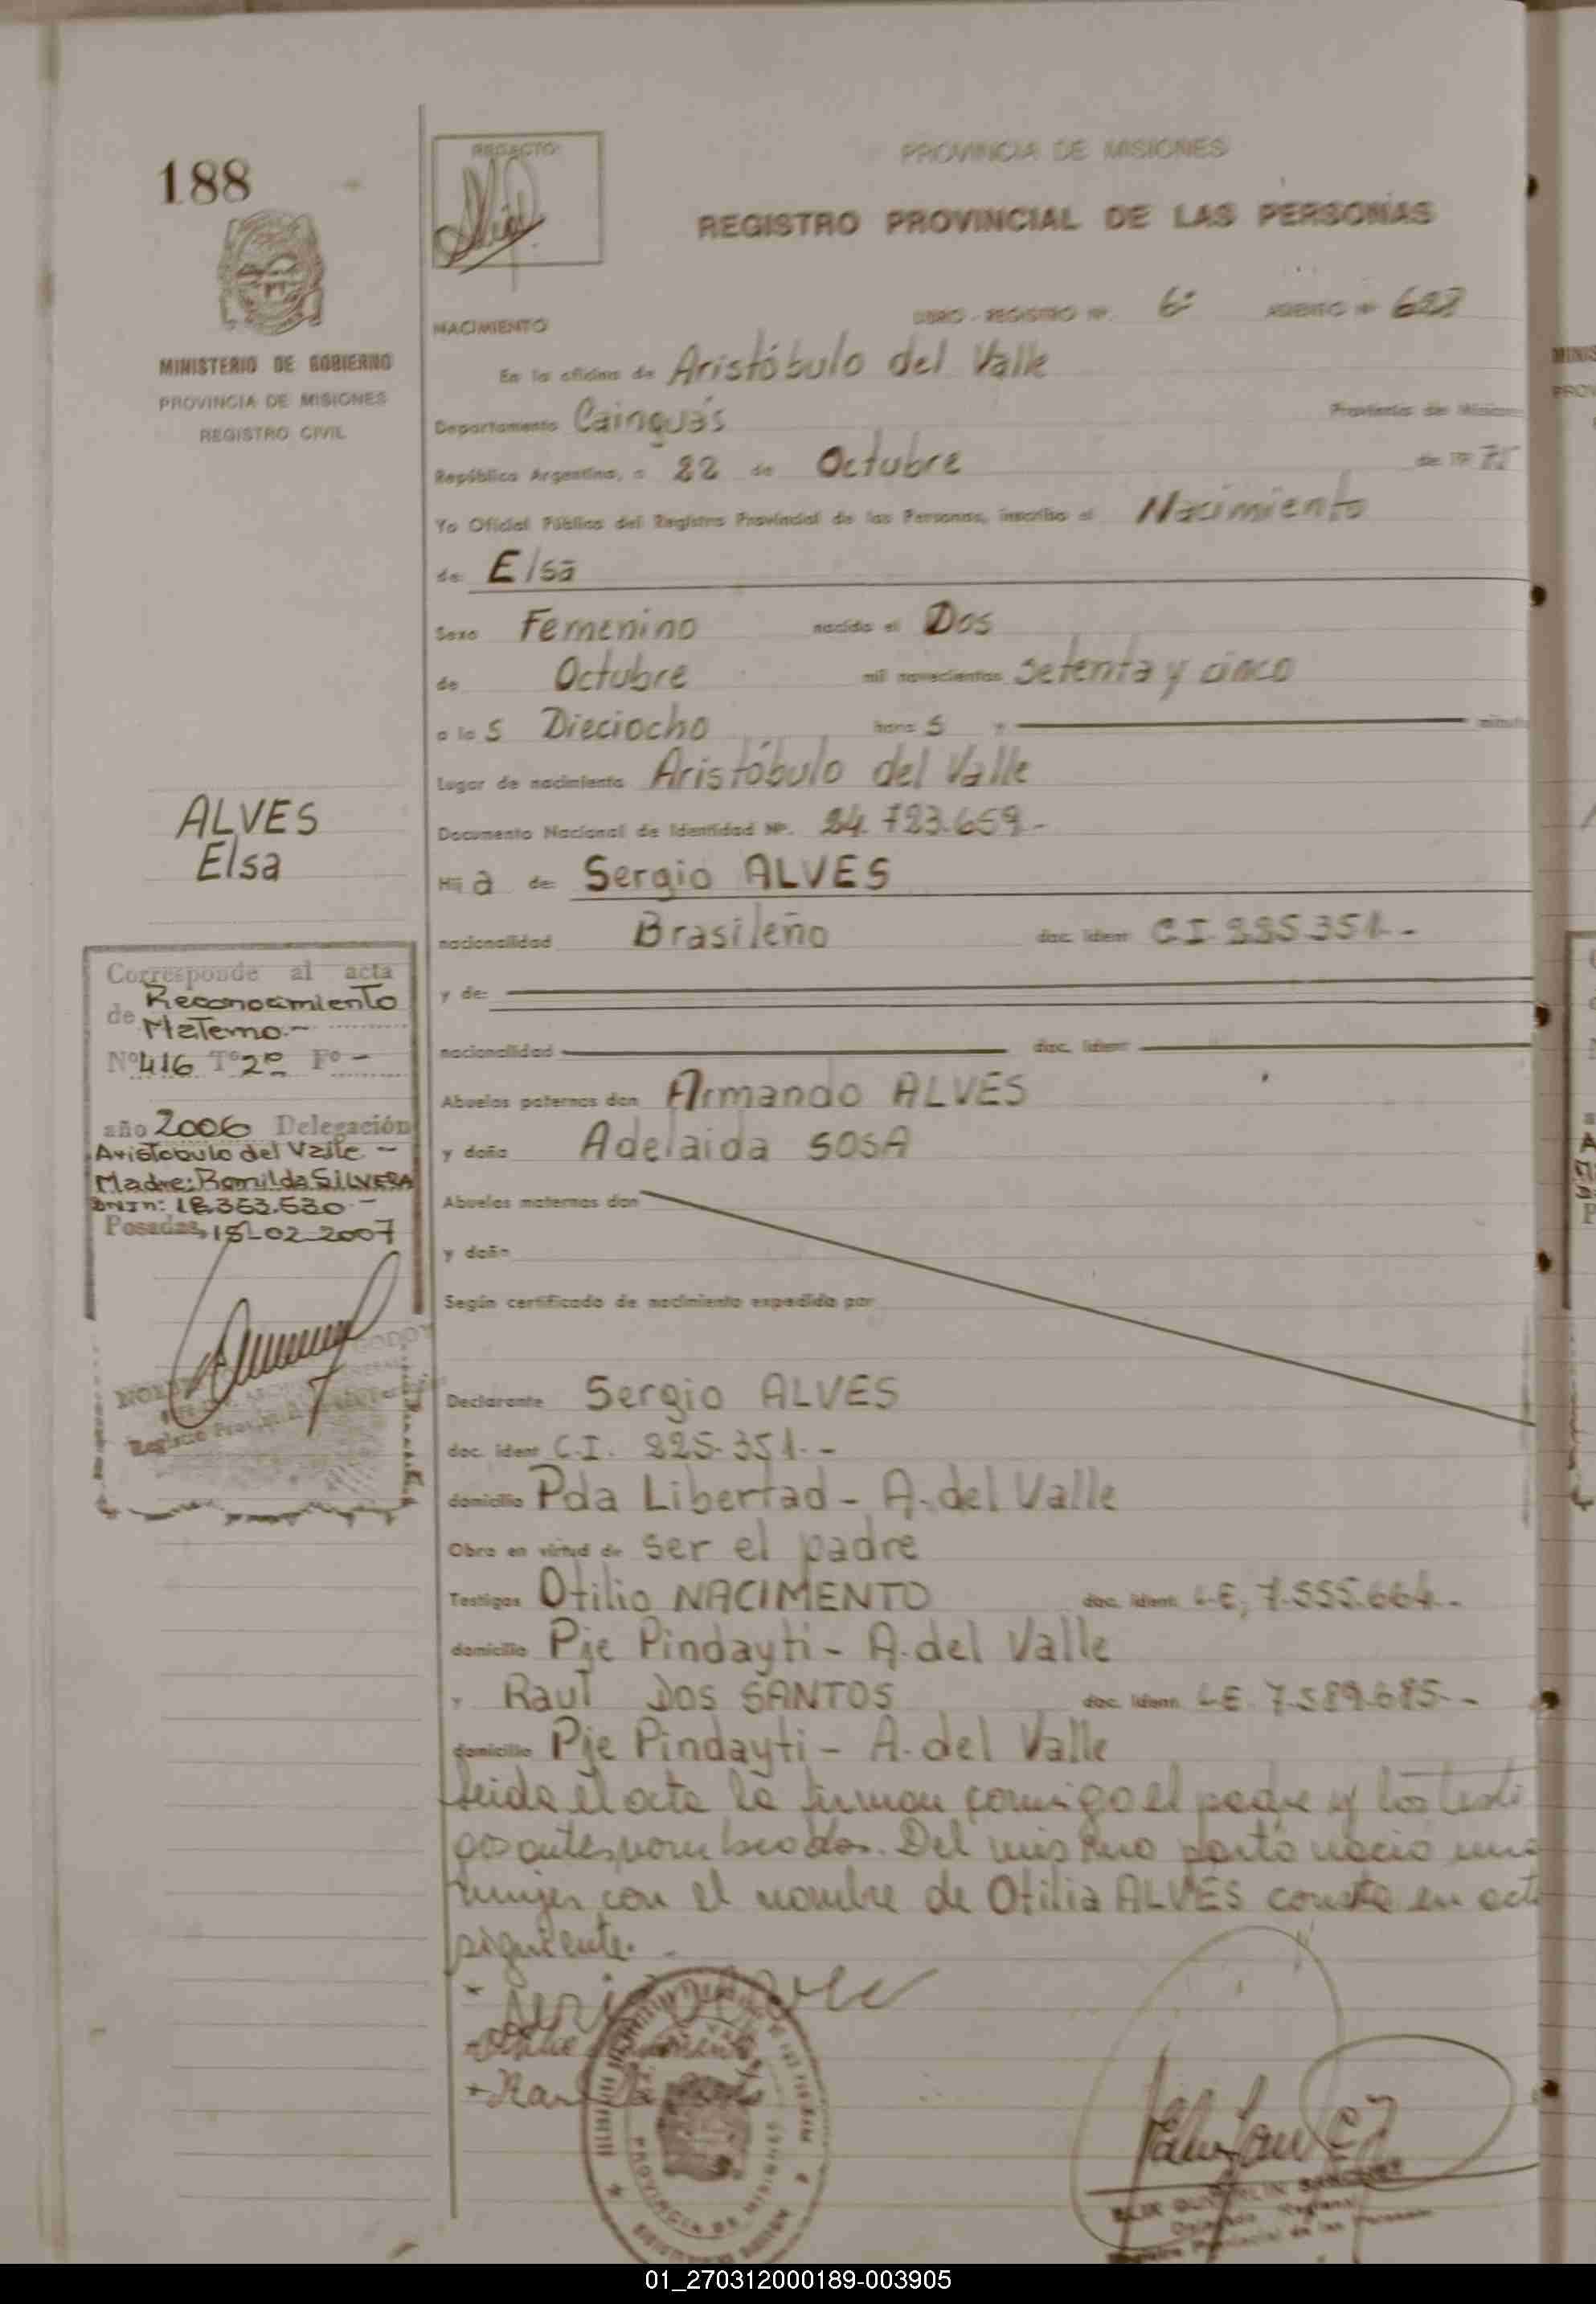 188
REDACTO
PROVINCIA DE MISIONES
REGISTRO PROVINCIAL DE LAS PERSONAS
MINISTERIO DE GOBIERNO
PROVINCIA DE MISIONES
REGISTRO CIVIL
LIBRO - REGISTRO Nº. 6º ASIENTO Nº
NACIMIENTO
En la oficina de Aristóbulo del Valle
Departamento Cainguás Provincia de Misiones
República Argentina, a 22 de Octubre de 19 75
Yo Oficial Público del Registro Provincial de las Personas, inscribo el Nacimiento
de: Elsa
Sexo Femenino nacido el Dos
de Octubre mil novecientos setenta y cinco
a la s Dieciocho hora s y
Lugar de nacimiento Aristóbulo del Valle
Documento Nacional de Identidad Nº. 24.723.659.-
ALVES
Elsa
Hij a de: Sergio ALVES
nacionalidad Brasileño doc. ident C.I.
y de:
nacionalidad doc. ident
Abuelos paternos don Armando ALVES
y doña Adelaida SOSA
Abuelos maternos don
y doña
Según certificado de nacimiento expedido por
Corresponde al acta
de Reconocimiento
Materno.-
Nº 416 Tº 2º Fº -
año 2006 Delegación
Aristobulo del Valle -
Madre: Romilda SILVERA
DNIN: 18.353.530.-
Posadas, 15-02-2007
Declarante Sergio ALVES
doc. ident C.I.
domicilio Pda Libertad - A. del Valle
Obra en virtud de ser el padre
Testigos Otilio NACIMENTO doc. ident. L.E. 7.555.664.-
domicilio Pje Pindayti - A. del Valle
y Raul DOS SANTOS doc. ident. L.E. 7.589.685.-
domicilio Pje Pindayti - A. del Valle
Leida el acta la firman conmigo el padre y los testi
gos antes nombrados. Del mismo parto nació una
mujer con el nombre de Otilia ALVES consta en acta
siguiente.
PROVINCIA DE MISIONES
01_270312000189-003905